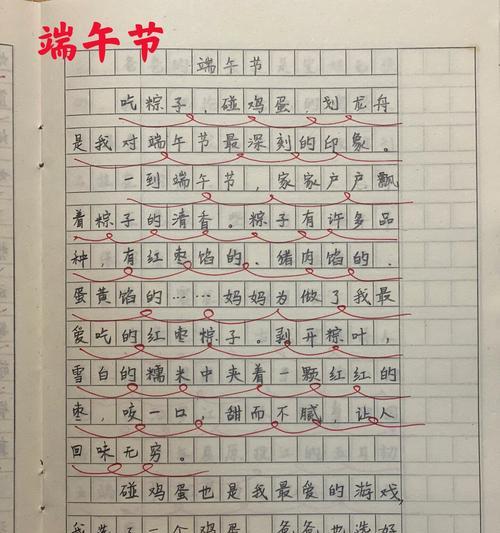 端午节
端午节
吃粽子,碰鸡蛋,划龙舟
是我对端午节最深刻的印象。
一到端午节,家家户户飘
着粽子的清香。粽子有许多品
种,有红枣馅的、猪肉馅的、
蛋黄馅的……妈妈为做了我最
爱吃的红枣粽子。剥开粽叶,
雪白的糯米中夹着一颗红红的
枣,咬一口,甜而不腻,让人
回味无穷。
碰鸡蛋也是我最爱的游戏,
我选了一个鸡蛋,爸爸也选好